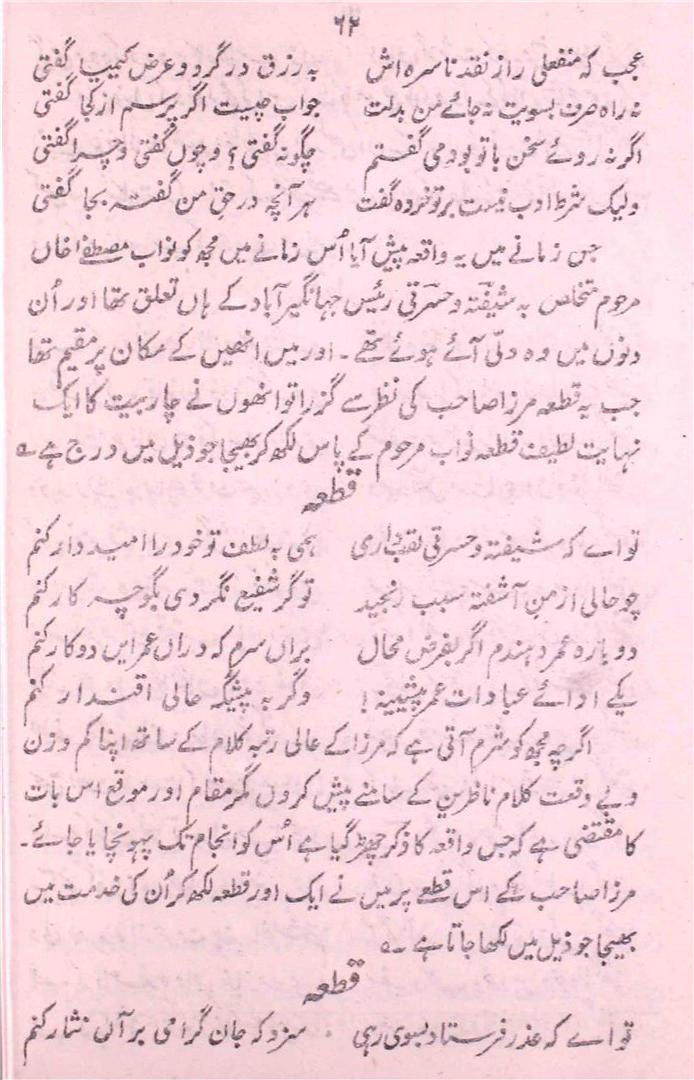 ۶۲
عجب کہ منفعلی راز نقد ناسرہ اش بہ رزق درگرد و عرض کیمیا گفتی
نہ راہ حرف بسویت نہ جائے من بدلت جواب چیست اگر پرسم از کجا گفتی
اگر نہ روئے سخن با تو بود می گفتم چگونہ گفتی؟ و چوں گفتی و چرا گفتی
ولیک شرط ادب نیست بر تو خردہ گفت ہر آنچہ در حق من گفتہ بجا گفتی
جس زمانے میں یہ واقعہ پیش آیا اُس زمانے میں مجھ کو نواب مصطفےٰ خاں
مرحوم متخلص بہ شیفتہ و حسرتی رئیس جہانگیر آباد کے ہاں تعلق تھا اور اُن
دنوں میں وہ دلّی آئے ہوئے تھے۔ اور میں انھیں کے مکان پر مقیم تھا
جب یہ قطعہ مرزا صاحب کی نظر سے گزرا تو انھوں نے چار بیت کا ایک
نہایت لطیف قطعہ نواب مرحوم کے پاس لکھ کر بھیجا جو ذیل میں درج ہے ؎
قطعہ
تو اے کہ شیفتہ و حسرتی لقب داری ہمی بہ لطف تو خود را امیدوار کنم
چو حالی از من آشفتہ بے سبب رنجید تو گر شفیع نگردی بگو چہ کار کنم
دوبارہ عمر دہندم اگر بفرض محال براں سرم کہ دراں عمر ایں دو کار کنم
یکے ادائے عبادات عمر پیشینہ! دگر بہ پیشگہ حالی اعتذار کنم
اگرچہ مجھ کو شرم آتی ہے کہ مرزا کے عالی رتبہ کلام کے ساتھ اپنا کم وزن
و بے وقعت کلام ناظرین کے سامنے پیش کروں مگر مقام اور موقع اس بات
کا مقتضی ہے کہ جس واقعہ کا ذکر چھڑ گیا ہے اُس کو انجام تک پہونچایا جائے۔
مرزا صاحب کے اس قطعے پر میں نے ایک اور قطعہ لکھ کر اُن کی خدمت میں
بھیجا جو ذیل میں لکھا جاتا ہے ؎
قطعہ
تو اے کہ عذر فرستاد بسوی رہی سزد کہ جان گرامی بر آں نثار کنم